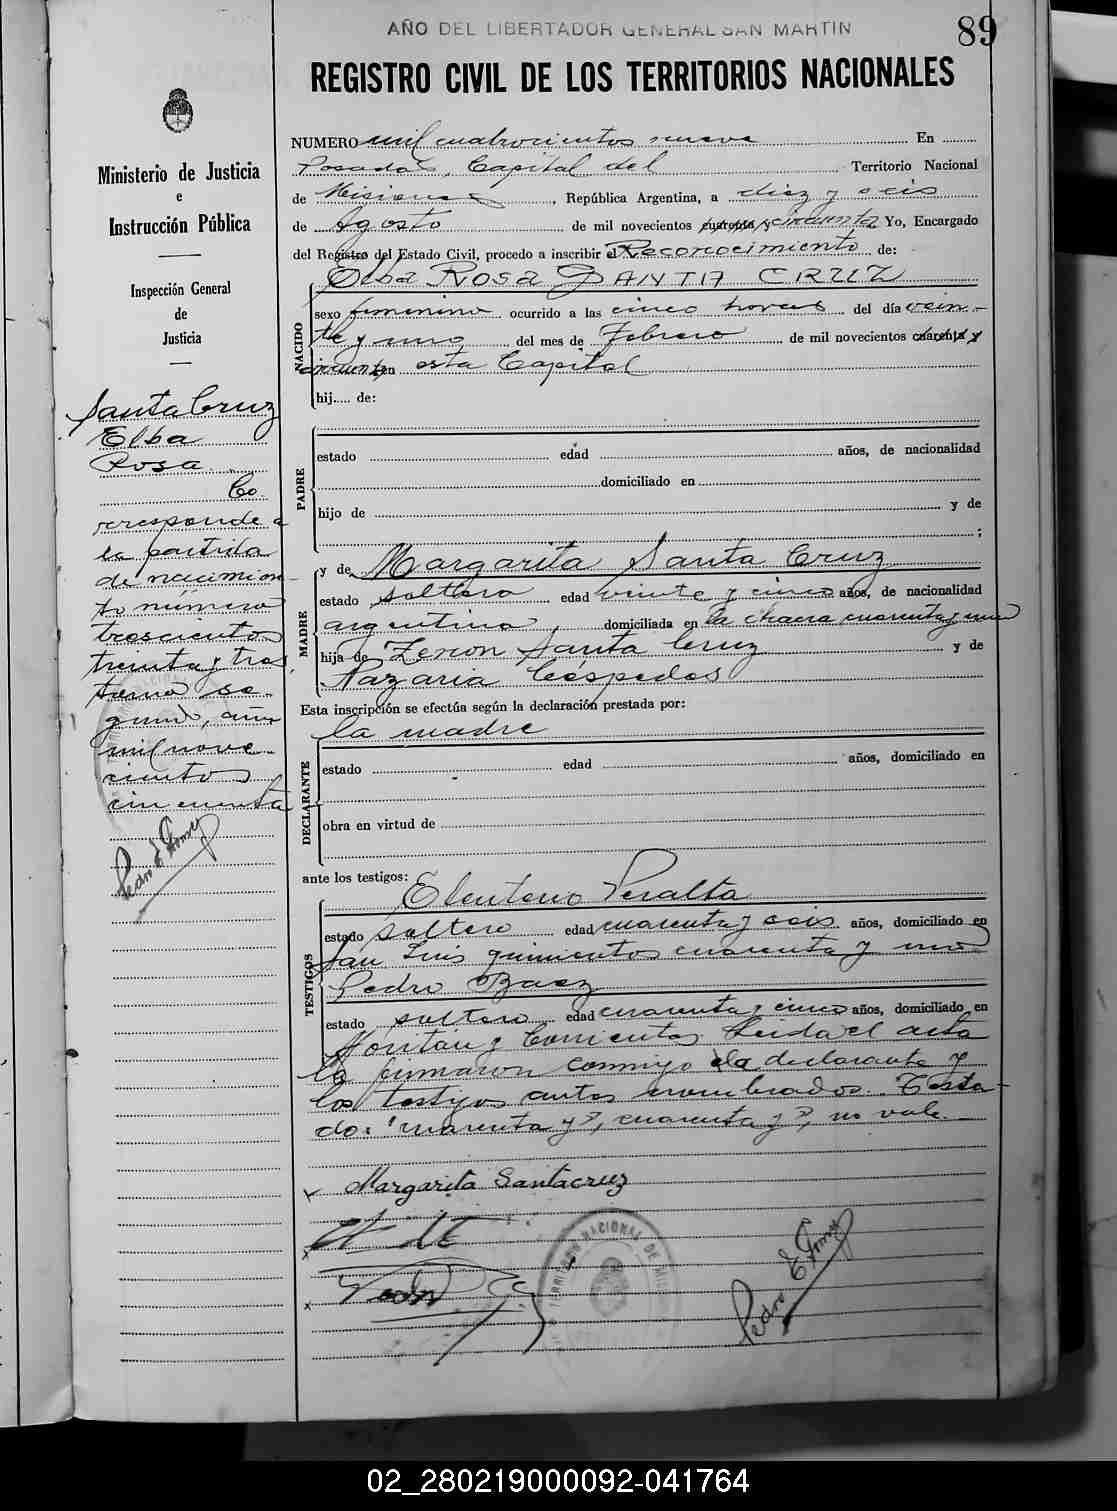 AÑO DEL LIBERTADOR GENERAL SAN MARTIN
89
REGISTRO CIVIL DE LOS TERRITORIOS NACIONALES
Ministerio de Justicia
e
Instrucción Pública
Inspección General
de
Justicia
Santa Cruz
Elba
Rosa
Co-
rresponde a
la partida
de nacimien-
to número
trescientos
treinta y tres
tomo se-
gundo, año
mil nove-
cientos
cincuenta
Pedro E Gomez
NUMERO mil cuatrocientos nueve En
Posadas, Capital del Territorio Nacional
de Misiones, República Argentina, a diez y seis
de Agosto de mil novecientos cuarenta y cincuenta Yo, Encargado
del Registro del Estado Civil, procedo a inscribir el Reconocimiento de:
Elba Rosa SANTA CRUZ
NACIDO
sexo femenino ocurrido a las cinco horas del día vein-
te y uno del mes de Febrero de mil novecientos cuarenta y
cincuenta en esta Capital
hij.... de:
PADRE
estado edad años, de nacionalidad
domiciliado en
hijo de y de
;
MADRE
y de Margarita Santa Cruz
estado soltera edad veinte y cinco años, de nacionalidad
argentina, domiciliada en la chacra cuarenta y uno
hija de Zenon Santa Cruz y de
Nazaria Céspedes
Esta inscripción se efectúa según la declaración prestada por:
la madre
DECLARANTE
estado edad años, domiciliado en
obra en virtud de
ante los testigos:
Eleuterio Peralta
TESTIGOS
estado soltero edad cuarenta y seis años, domiciliado en
San Luis quinientos cuarenta y uno
Pedro Baez
estado soltero edad cuarenta y cinco años, domiciliado en
y Corrientes Leida el acta
la firmaron conmigo la declarante y
los testigos antes nombrados. Testa-
do: "cuarenta y", cuarenta y", no vale.
Margarita Santacruz
TERRITORIO NACIONAL DE MISIONES
Pedro E Gomez
02_280219000092-041764